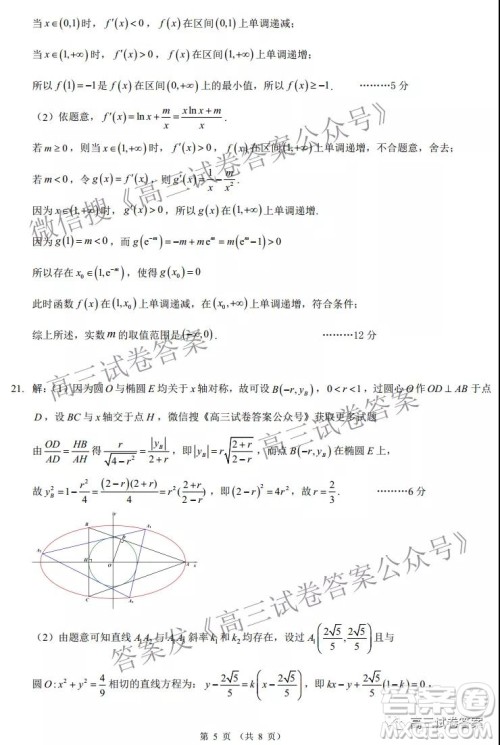 当 x∈(0,1) 时，f′(x)<0，f(x) 在区间 (0,1) 上单调递减；
当 x∈(1,+∞) 时，f′(x)>0，f(x) 在区间 (1,+∞) 上单调递增；
所以 f(1)=−1 是 f(x) 在区间 (0,+∞) 上的最小值，所以 f(x)≥−1．………5 分
（2）依题意，f′(x)=ln x+m/x=(x ln x+m)/x．
若 m≥0，则当 x∈(1,+∞) 时，f′(x)>0，f(x) 在区间 (1,+∞) 上单调递增，不合题意，舍去；
若 m<0，令 g(x)=f′(x)，则 g′(x)=1/x−m/x²．
因为 x∈(1,+∞) 时，g′(x)>0，所以 g(x) 在 (1,+∞) 上单调递增．
因为 g(1)=m<0，而 g(e⁻ᵐ)=−m+meᵐ=m(eᵐ−1)>0
所以存在 x₀∈(1,e⁻ᵐ)，使得 g(x₀)=0
此时函数 f(x) 在 (1,x₀) 上单调递减，在 (x₀,+∞) 上单调递增，符合条件；
综上所述，实数 m 的取值范围是 (−∞,0)．………12 分
21．解：（1）因为圆 O 与椭圆 E 均关于 x 轴对称，故可设 B(−r,y_B)，0<r<1，过圆心 O 作 OD⊥AB 于点
D，设 BC 与 x 轴交于点 H，微信搜《高三试卷答案公众号》获取更多试题
由 OD/AD=HB/AH 得 r/√(4−r²)=|y_B|/(2+r)，即 |y_B|=r√((2+r)/(2−r))，而点 B(−r,y_B) 在椭圆 E 上，
故 y_B²=1−r²/4=(2−r)(2+r)/4=r²((2+r)/(2−r))，即 (2−r)²=4r²，故 r=2/3．………6 分
B
D
H
O
A
C
（2）由题意可知直线 A₁A₂ 与 A₁A₃ 斜率 k₁ 和 k₂ 均存在，设过 A₁(2√5/5,2√5/5) 且与
圆 O:x²+y²=4/9 相切的直线方程为：y−2√5/5=k(x−2√5/5)，即 kx−y+2√5/5(1−k)=0，
第 5 页 （共 8 页）
微信搜《高三试卷答案公众号》
高三试卷答案
答案发《高三试卷答案公众号》
高三试卷答案